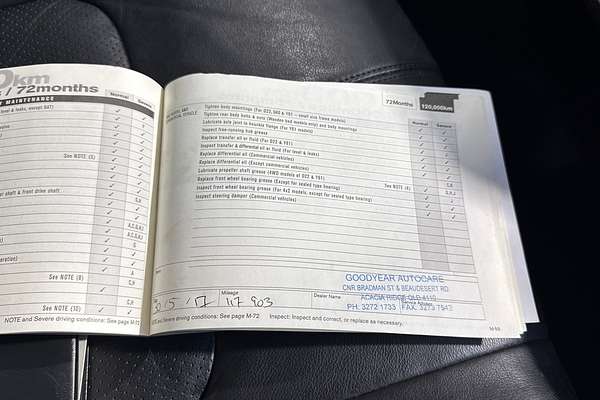 0km
/ 72months
MAINTENANCE
Normal
Severe
level & leaks, except SAT)
See NOTE (5)
shaft & front drive shaft
A,C,G,H
A,C,G,H,I
G
See NOTE (8)
G,H
See NOTE (10)
NOTE and Severe driving conditions: See page M-72
72Months
120,000km
Normal
Severe
Tighten body mountings (For D22, S60 & Y61 — small size frame models)
Tighten rear body bolts & nuts (Wooden bed models only) and body mountings
Lubricate axle joint to knuckle flange (For Y61 models)
Inspect free-running hub grease
Replace transfer oil or fluid (For D22 & Y61)
Inspect transfer & differential oil or fluid (For level & leaks)
Replace differential oil (Commercial vehicles)
Replace differential oil (Except commercial vehicles)
Lubricate propeller shaft grease (4WD models of D22 & Y61)
Replace front wheel bearing grease (Except for sealed type bearing) See NOTE (4)
Inspect front wheel bearing grease (For 4x2 models, except for sealed type bearing)
Inspect steering damper (Commercial vehicles)
GOODYEAR AUTOCARE
CNR BRADMAN ST & BEAUDESERT RD
ACACIA RIDGE QLD 4110
PH: 3272 1733 FAX: 3273 7543
Mileage
117 903
Dealer Name
Service Advisor
and Severe driving conditions: See page M-72 Inspect: Inspect and correct, or replace as necessary.